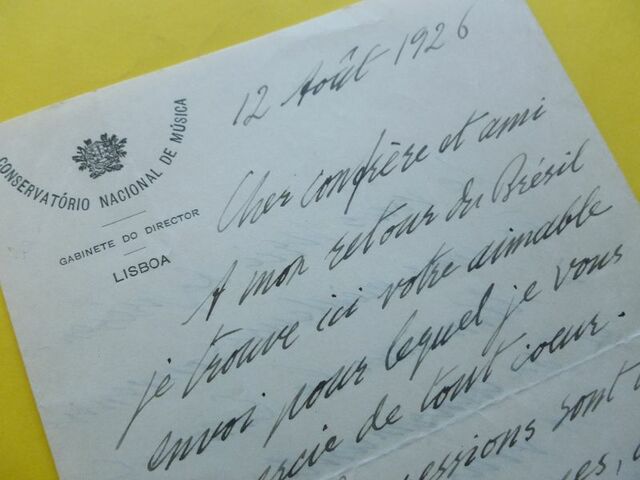 CONSERVATÓRIO NACIONAL DE MÚSICA
GABINETE DO DIRECTOR
LISBOA
12 Août 1926
Cher confrère et ami
A mon retour du Brésil
je trouve ici votre aimable
envoi pour lequel je vous
ercie de tout coeur.
essions sont
es,